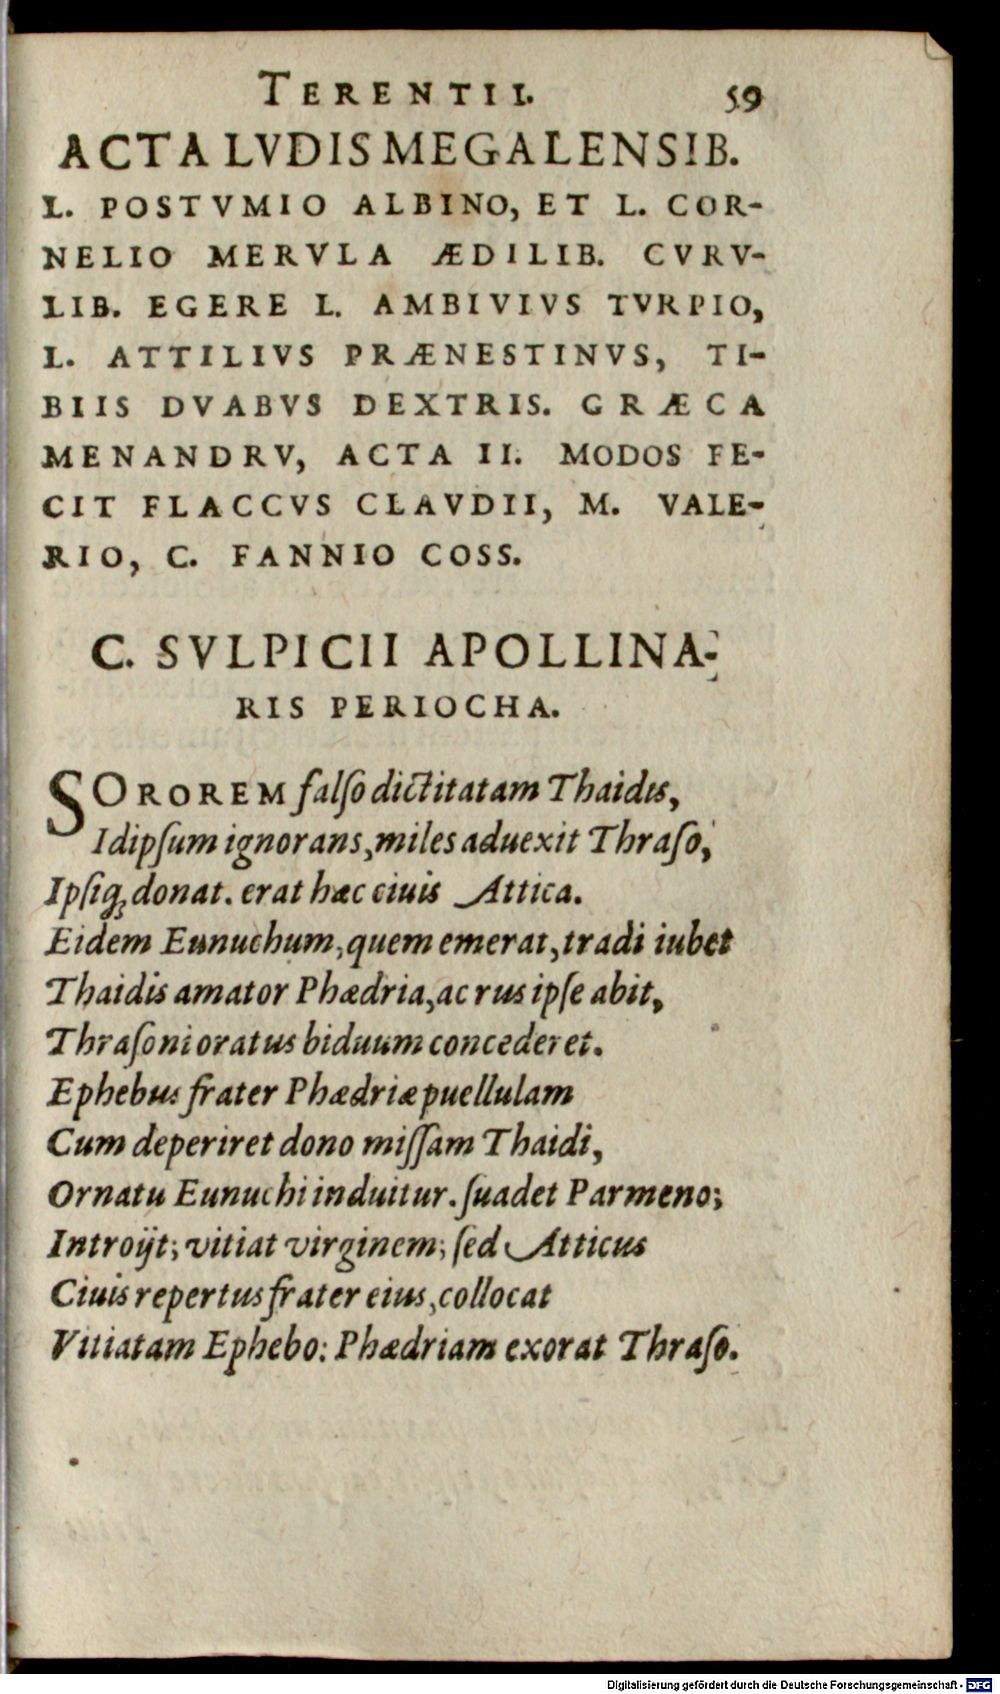 TERENTII. 59
ACTA LVDIS MEGALENSIB.
L. POSTVMIO ALBINO, ET L. COR-
NELIO MERVLA ÆDILIB. CVRV-
LIB. EGERE L. AMBIVIVS TVRPIO,
L. ATTILIVS PRÆNESTINVS, TI-
BIIS DVABVS DEXTRIS. GRÆCA
MENANDRV, ACTA II. MODOS FE-
CIT FLACCVS CLAVDII, M. VALE-
RIO, C. FANNIO COSS.
C. SVLPICII APOLLINA-
RIS PERIOCHA.
SOROREM falſo dictitatam Thaidis,
Idipſum ignorans, miles aduexit Thraſo,
Ipſiq; donat. erat hæc ciuis Attica.
Eidem Eunuchum, quem emerat, tradi iubet
Thaidis amator Phædria, ac rus ipſe abit,
Thraſoni oratus biduum concederet.
Ephebus frater Phædriæ puellulam
Cum deperiret dono miſſam Thaidi,
Ornatu Eunuchi induitur. ſuadet Parmeno;
Introijt; vitiat virginem; ſed Atticus
Ciuis repertus frater eius, collocat
Vitiatam Ephebo: Phædriam exorat Thraſo.
Digitalisierung gefördert durch die Deutsche Forschungsgemeinschaft - DFG